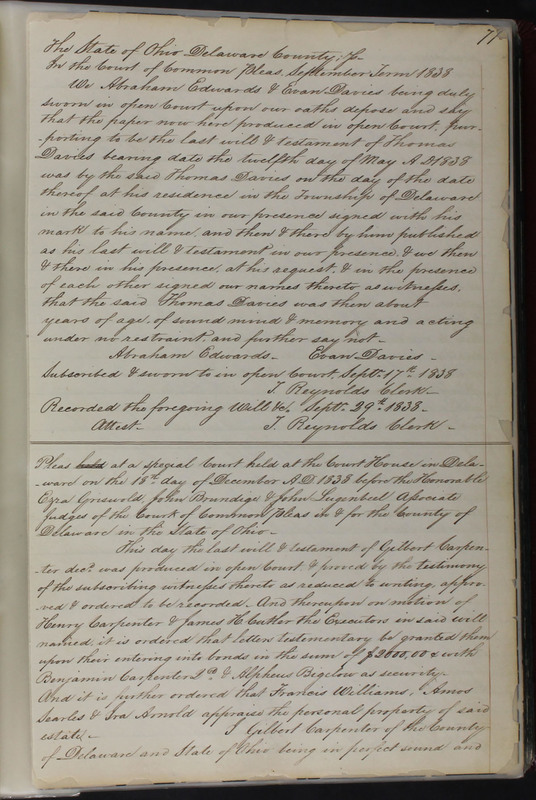 71
The State of Ohio Delaware County, ss
In the Court of Common Pleas, September Term 1838
We Abraham Edwards & Evan Davies being duly
sworn in open Court upon our oaths depose and say
that the paper now here produced in open Court, pur-
-porting to be the last will & testament of Thomas
Davies bearing date the twelfth day of May A D 1838
was by the said Thomas Davies on the day of the date
thereof at his residence in the Township of Delaware
in the said County in our presence signed with his
mark to his name, and then & there by him published
as his last will & testament in our presence, & we then
& there in his presence, at his request, & in the presence
of each other signed our names thereto as witnesses,
that the said Thomas Davies was then about
years of age, of sound mind & memory and acting
under no restraint, and further say not-
Abraham Edwards- Evan Davies-
Subscribed & sworn to in open Court, Septr 17th 1838
T. Reynolds Clerk-
Recorded the foregoing Will &c. Septr 29th 1838-
Attest- T. Reynolds Clerk-
Pleas held at a special Court held at the Court House in Dela-
-ware on the 18th day of December A.D 1838 before the Honorable
Ezra Griswold, John Brundige & John Associate
Judges of the Court of Common Pleas in & for the County of
Delaware in the State of Ohio-
This day the last will & testament of Gilbert Carpen-
-ter decd was produced in open Court & proved by the testimony
of the subscribing witnesses thereto as reduced to writing, appro-
-ved & ordered to be recorded- And thereupon on motion of
Henry Carpenter & James H Cutter the Executors in said will
named, it is ordered that letters testamentary be granted them
upon their entering into bonds in the sum of $2000,00 c with
Benjamin Carpenter & Alpheus Bigelow as security-
And it is further ordered that Francis Williams, Amos
Searles & Ira Arnold appraise the personal property of said
estate- I Gilbert Carpenter of the County
of Delaware and State of Ohio being in perfect sound and